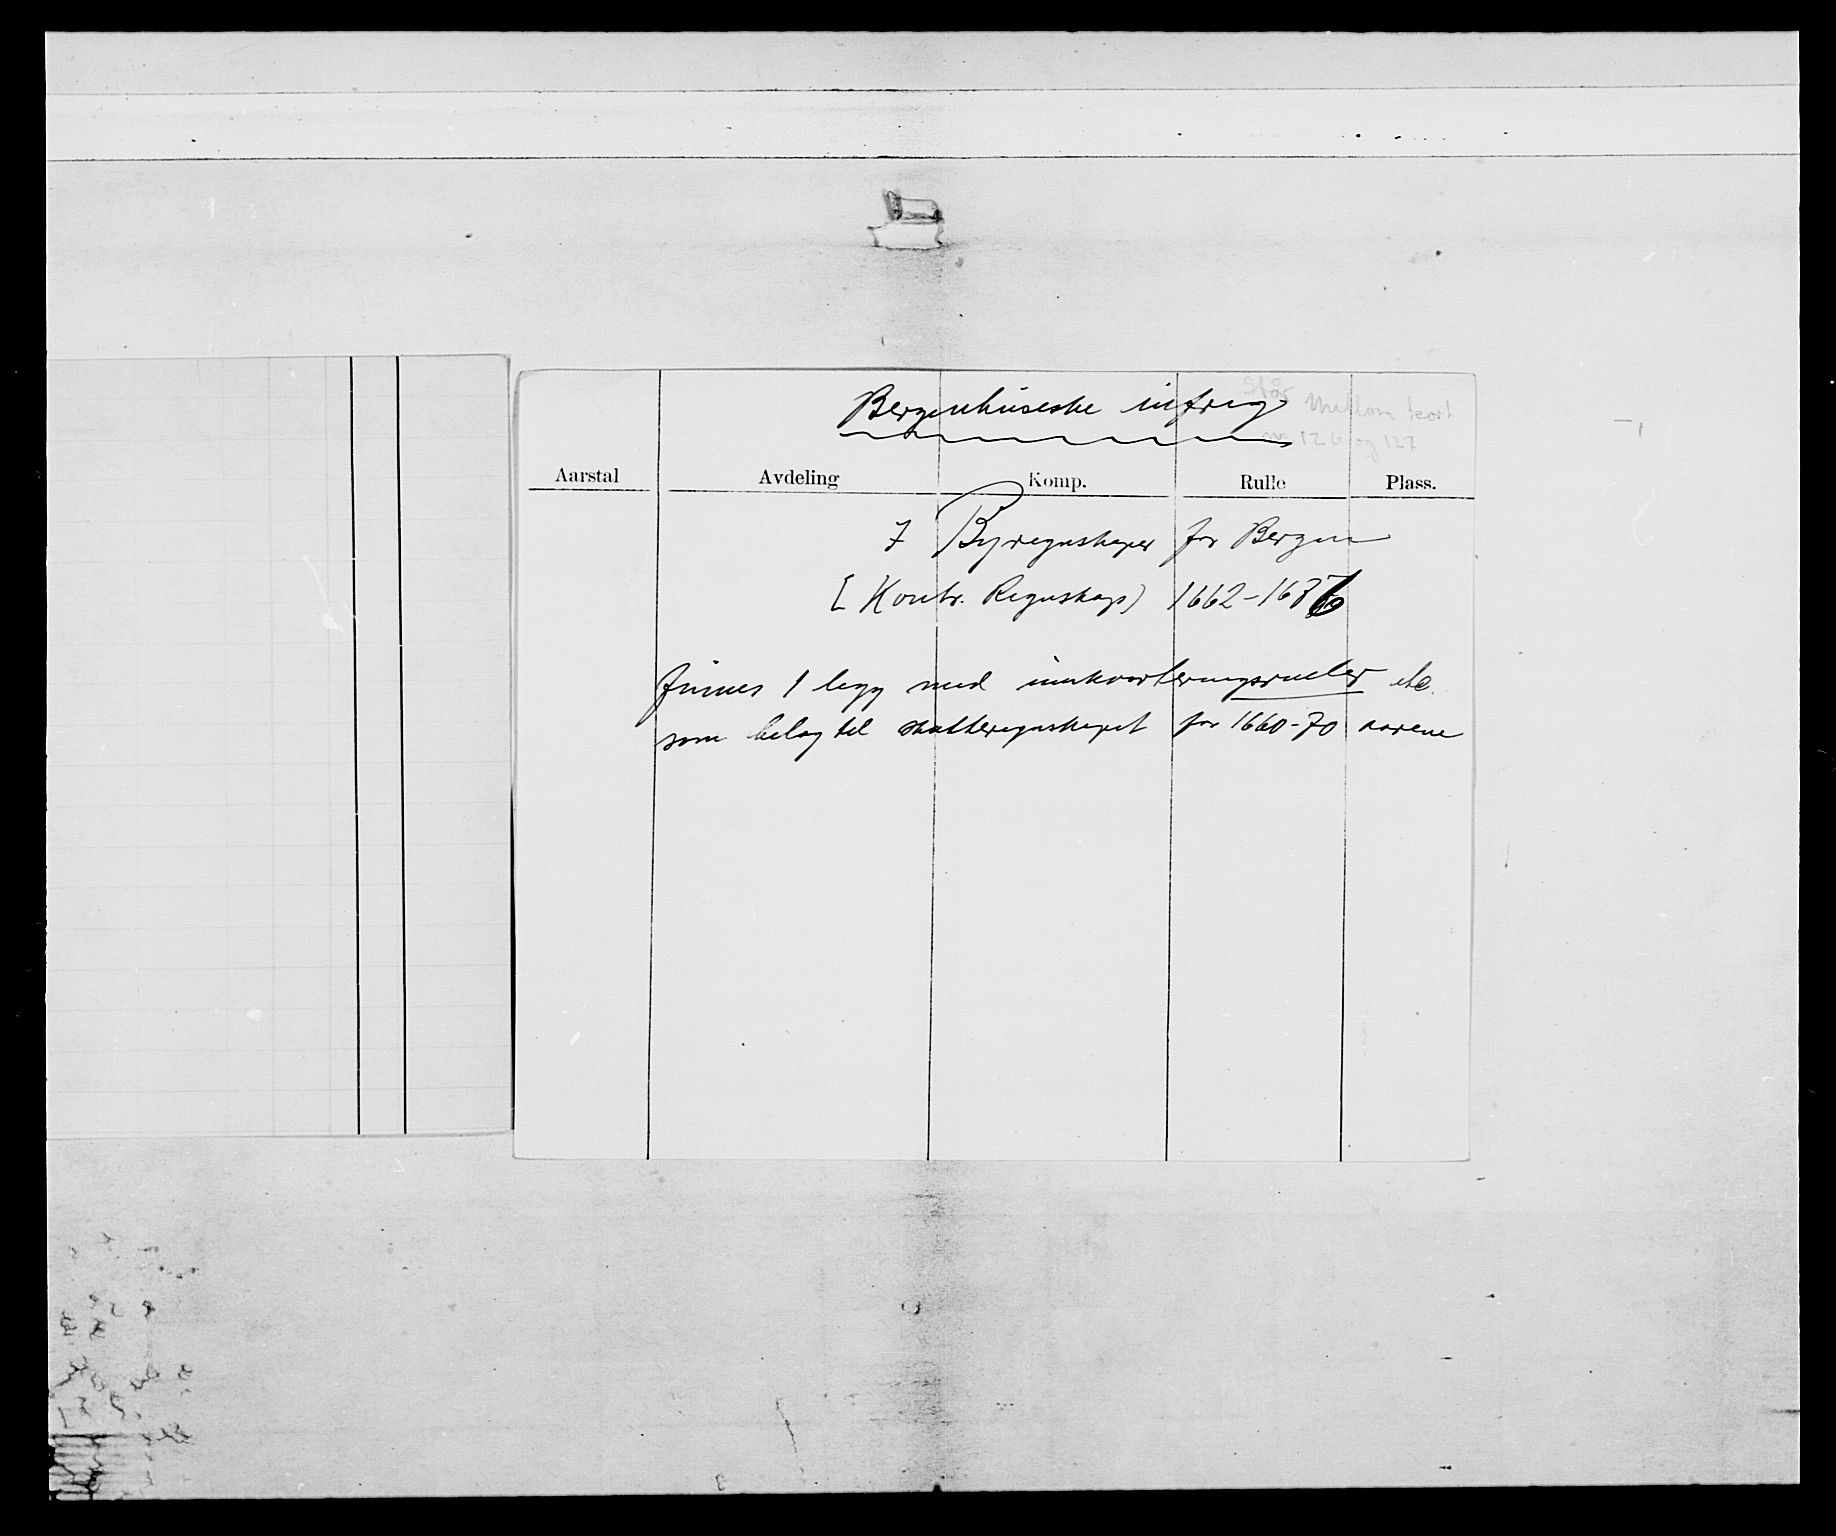 Bergenhuseske inf.reg
Står mellom kort
nr 126 og 127
Aarstal Avdeling Komp. Rulle Plass.
I Byregnskaper for Bergen
[Kontr. Regnskap) 1662-1686
finnes 1 legg med innkvarteringsruller etc.
som bilag til skatteregnskapet for 1660-70 aarene